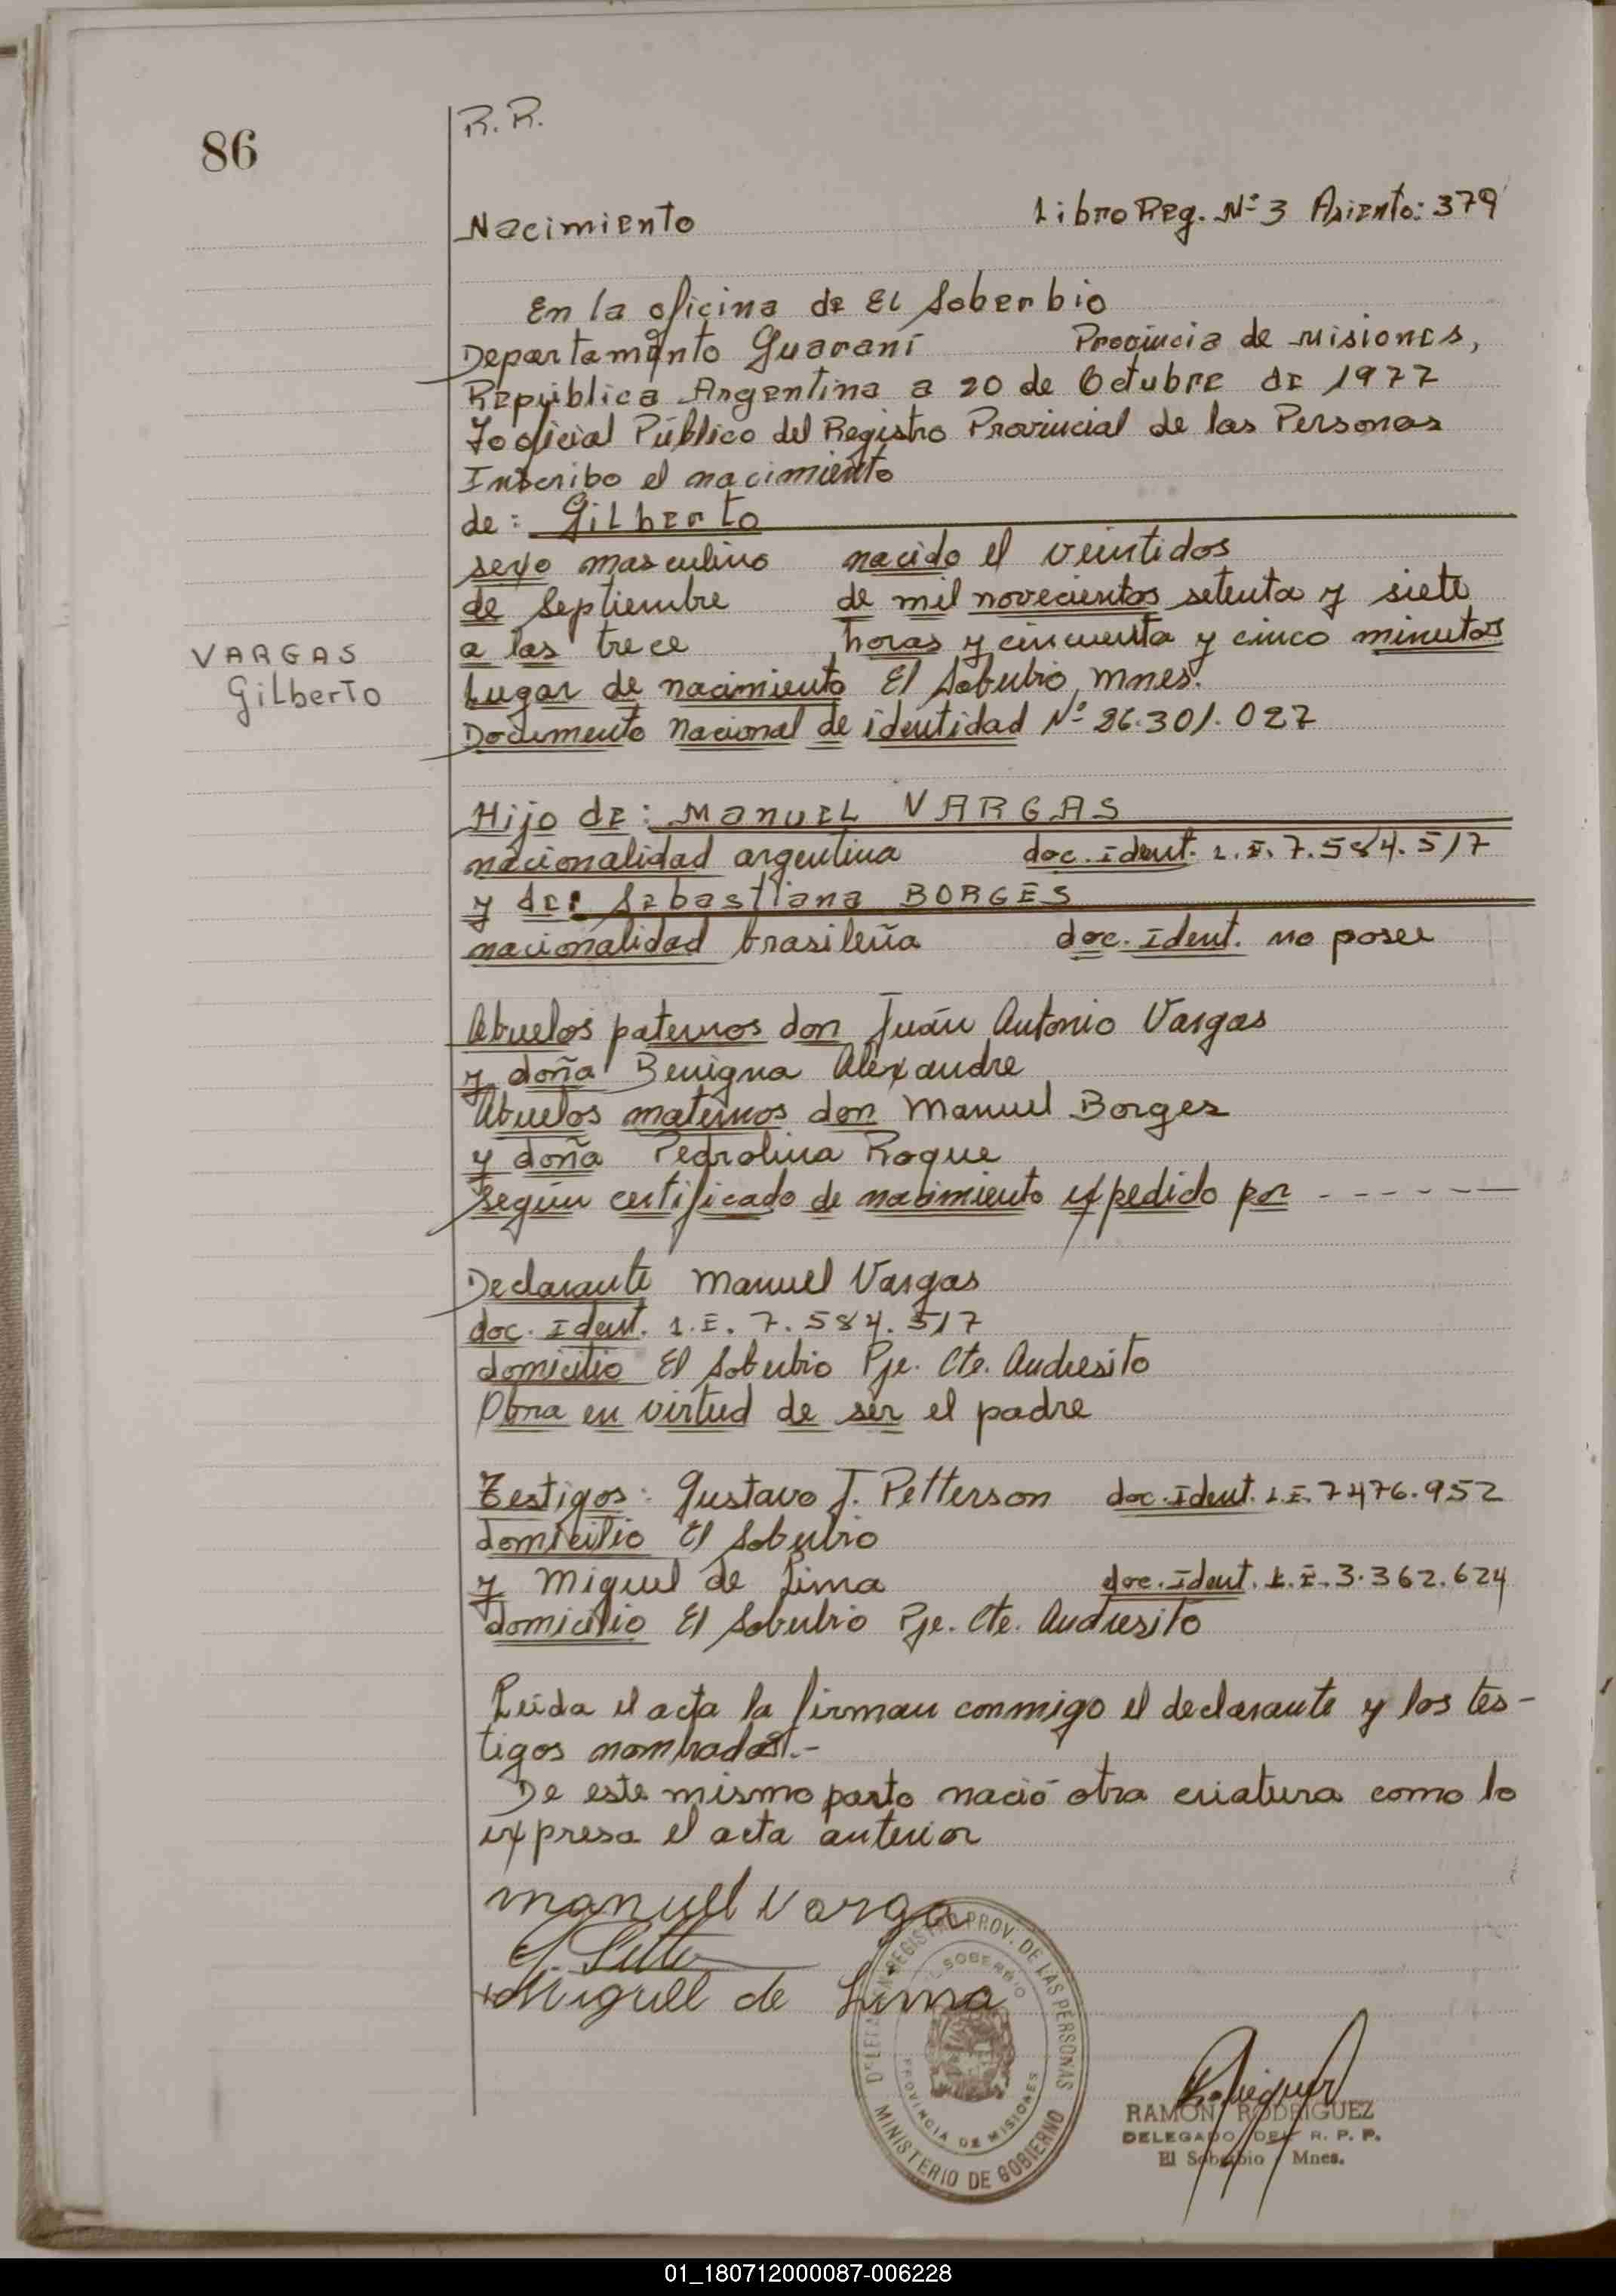 86
R. R.
Nacimiento
Libro Reg. Nº 3 Asiento: 379
En la oficina de El Soberbio
Departamento Guaraní Provincia de Misiones,
República Argentina a 20 de Octubre de 1977
Yo oficial Público del Registro Provincial de las Personas
Inscribo el nacimiento
de: Gilberto
sexo masculino nacido el veintidos
de Septiembre de mil novecientos setenta y siete
a las trece horas y cincuenta y cinco minutos
VARGAS
Gilberto
Lugar de nacimiento El Soberbio, Mnes.
Documento Nacional de identidad Nº 26.301.027
Hijo de: Manuel VARGAS
nacionalidad argentina doc. ident. L.E. 7.584.517
y de: Sebastiana BORGES
nacionalidad brasileña doc. Ident. no posee
Abuelos paternos don Juán Antonio Vargas
y doña Benigna Alexandre
Abuelos maternos don Manuel Borges
y doña Pedrolina Roque
Según certificado de nacimiento expedido por - - - - - -
Declarante Manuel Vargas
doc. Ident. L.E. 7.584.517
domicilio El Soberbio Pje. Cte. Andresito
Obra en virtud de ser el padre
Testigos: Gustavo J. Petterson doc. Ident. L.E. 7476.952
domicilio El Soberbio
y Miguel de Lima doc. Ident. L.E. 3.362.624
domicilio El Soberbio Pje. Cte. Andresito
Leida el acta la firman conmigo el declarante y los tes-
tigos nombrados.-
De este mismo parto nació otra criatura como lo
expresa el acta anterior
manuel Varga
G. Pette
Miguel de Lima
REGISTRO PROV. DE LAS PERSONAS
EL SOBERBIO
PROVINCIA DE MISIONES
MINISTERIO DE GOBIERNO
Rodriguez
RAMON RODRIGUEZ
DELEGADO DEL R. P. P.
El Soberbio - Mnes.
01_180712000087-006228